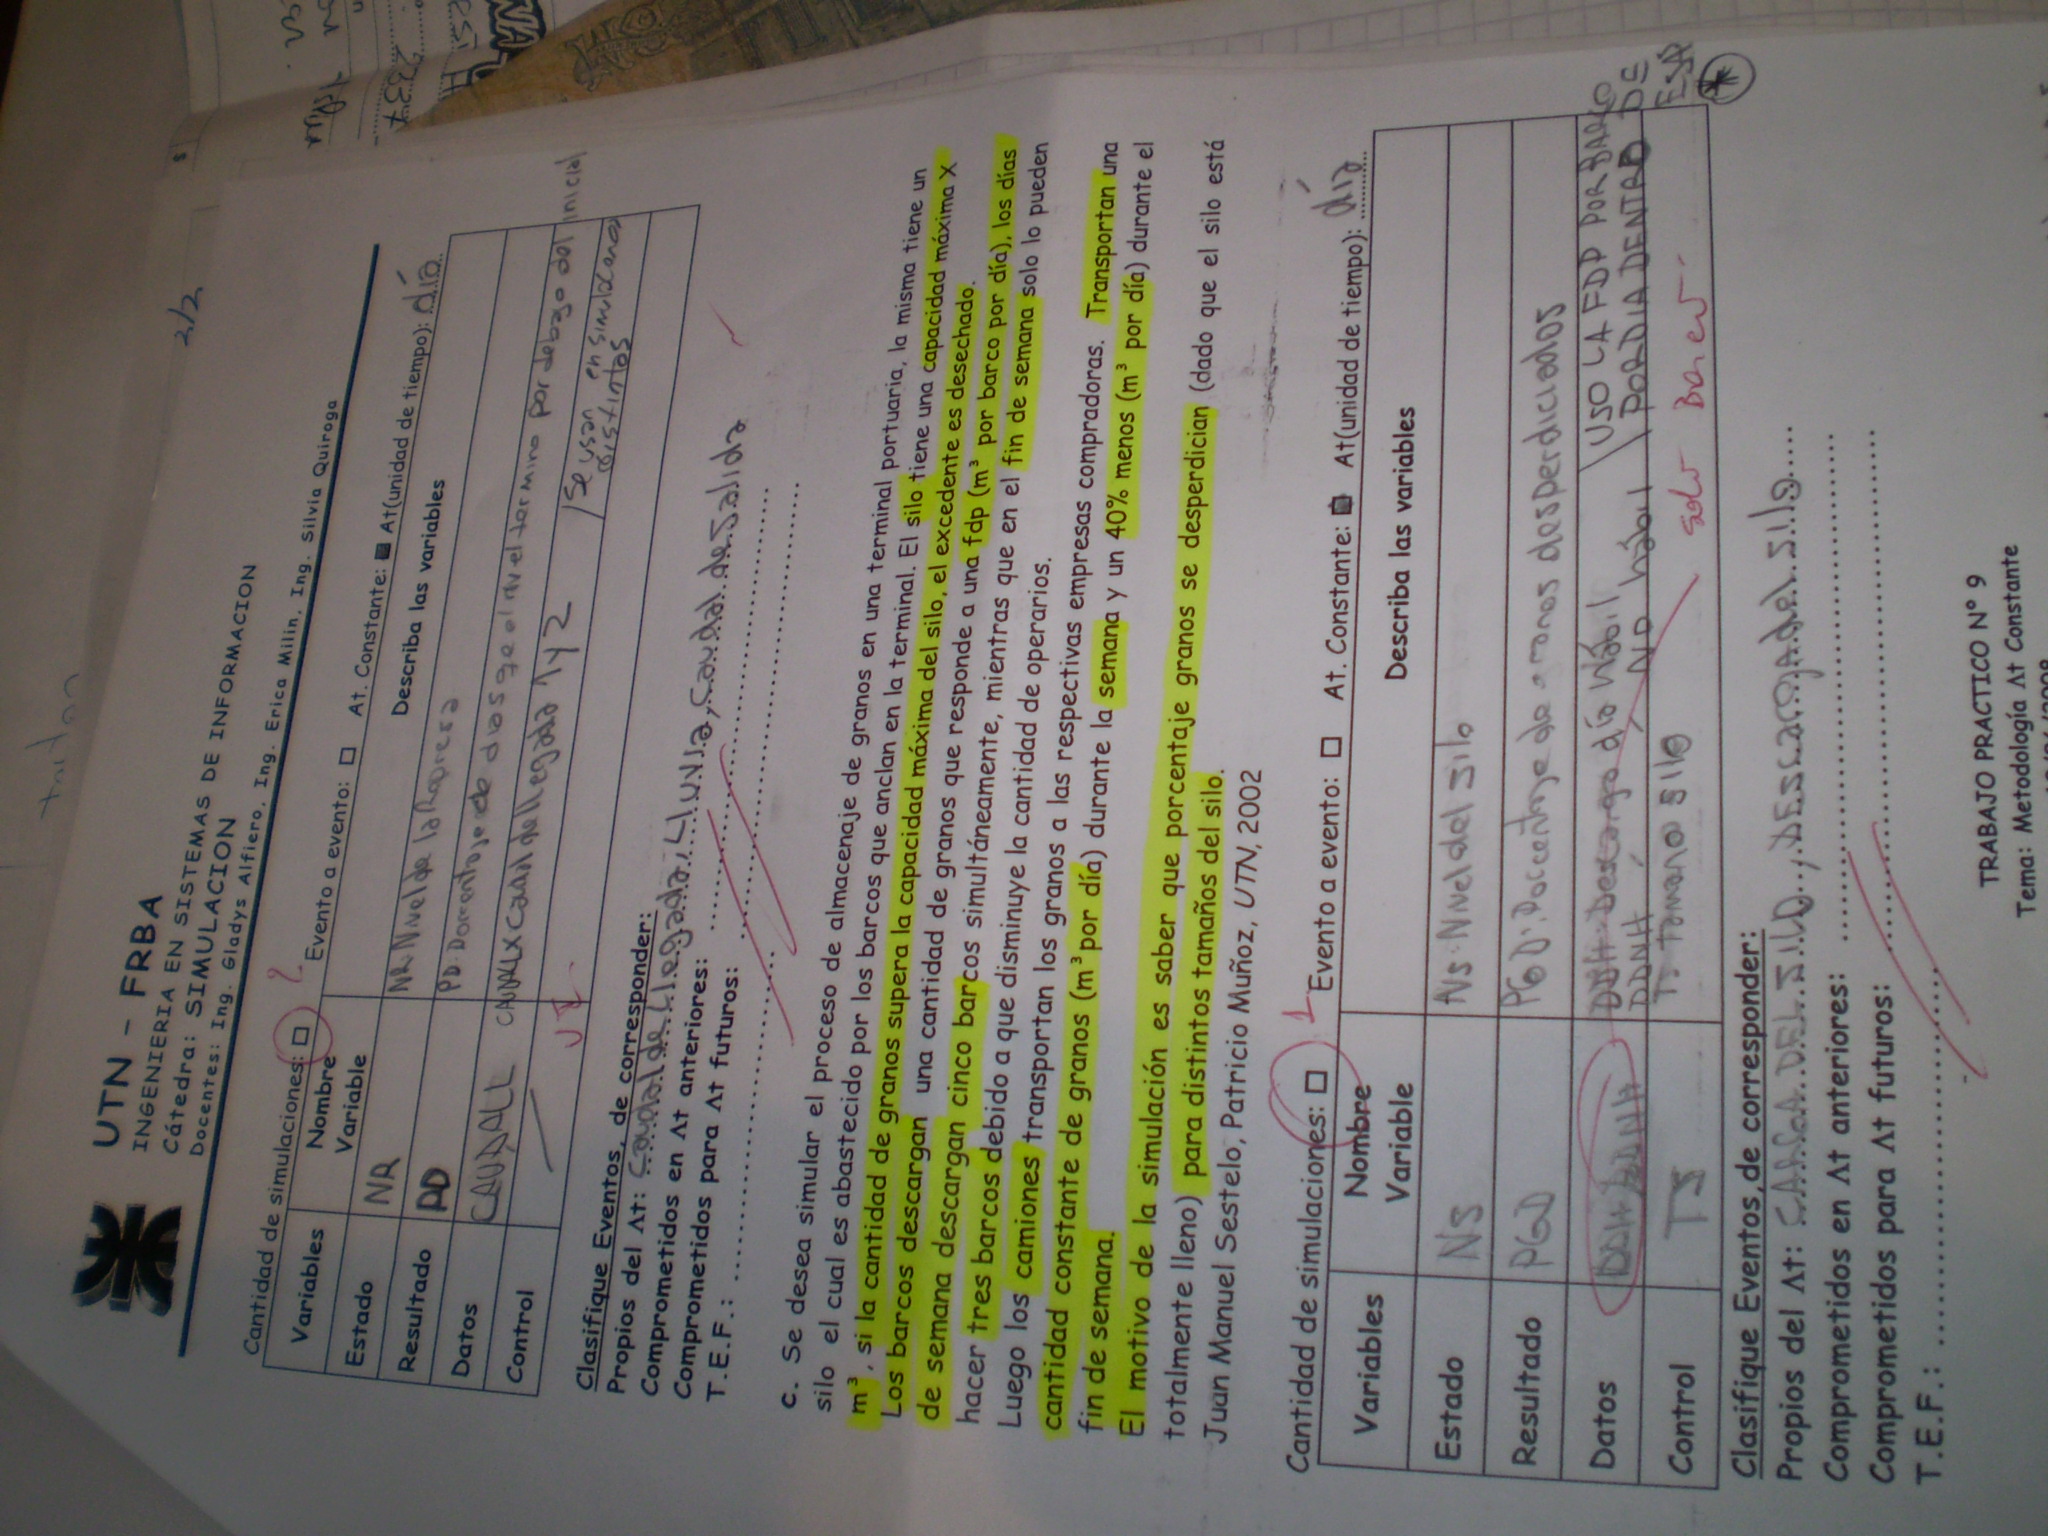 2/2
UTN - FRBA
INGENIERIA EN SISTEMAS DE INFORMACION
Cátedra: SIMULACION
Docentes: Ing. Gladys Alfiero. Ing. Erica Millin. Ing. Silvia Quiroga
Cantidad de simulaciones: 2 Evento a evento: At. Constante: At(unidad de tiempo): día
Variables Nombre Variable Describa las variables
Estado NR NR: Nivel de la Represa
Resultado PD PD: Porcentaje de dias que el nivel termino por debajo del inicial
Datos CAUDALL CAUDALLX Caudal de llegada 1 y 2 / se usan en simulaciones distintas
Control
Clasifique Eventos, de corresponder:
Propios del Δt: Caudal de Llegada, Lluvia, Caudal de Salida
Comprometidos en Δt anteriores:
Comprometidos para Δt futuros:
T.E.F.:
c. Se desea simular el proceso de almacenaje de granos en una terminal portuaria, la misma tiene un
silo el cual es abastecido por los barcos que anclan en la terminal. El silo tiene una capacidad máxima X
m³, si la cantidad de granos supera la capacidad máxima del silo, el excedente es desechado.
Los barcos descargan una cantidad de granos que responde a una fdp (m³ por barco por día), los días
de semana descargan cinco barcos simultáneamente, mientras que en el fin de semana solo lo pueden
hacer tres barcos debido a que disminuye la cantidad de operarios.
Luego los camiones transportan los granos a las respectivas empresas compradoras. Transportan una
cantidad constante de granos (m³ por día) durante la semana y un 40% menos (m³ por día) durante el
fin de semana.
El motivo de la simulación es saber que porcentaje granos se desperdician (dado que el silo está
totalmente lleno) para distintos tamaños del silo.
Juan Manuel Sestelo, Patricio Muñoz, UTN, 2002
Cantidad de simulaciones: 1 Evento a evento: At. Constante: At(unidad de tiempo): día
Variables Nombre Variable Describa las variables
Estado NS NS: Nivel del silo
Resultado PGD PGD: Porcentaje de granos desperdiciados
Datos DDH DDNH DDH: Descarga día Hábil USO LA FDP POR BARCO
DDNH No hábil POR DIA DENTRO DE ESA
Control TS TS Tamaño silo solo Barco
Clasifique Eventos, de corresponder:
Propios del Δt: CARGA DEL SILO, DESCARGA del silo
Comprometidos en Δt anteriores:
Comprometidos para Δt futuros:
T.E.F.:
TRABAJO PRACTICO N° 9
Tema: Metodología Δt Constante